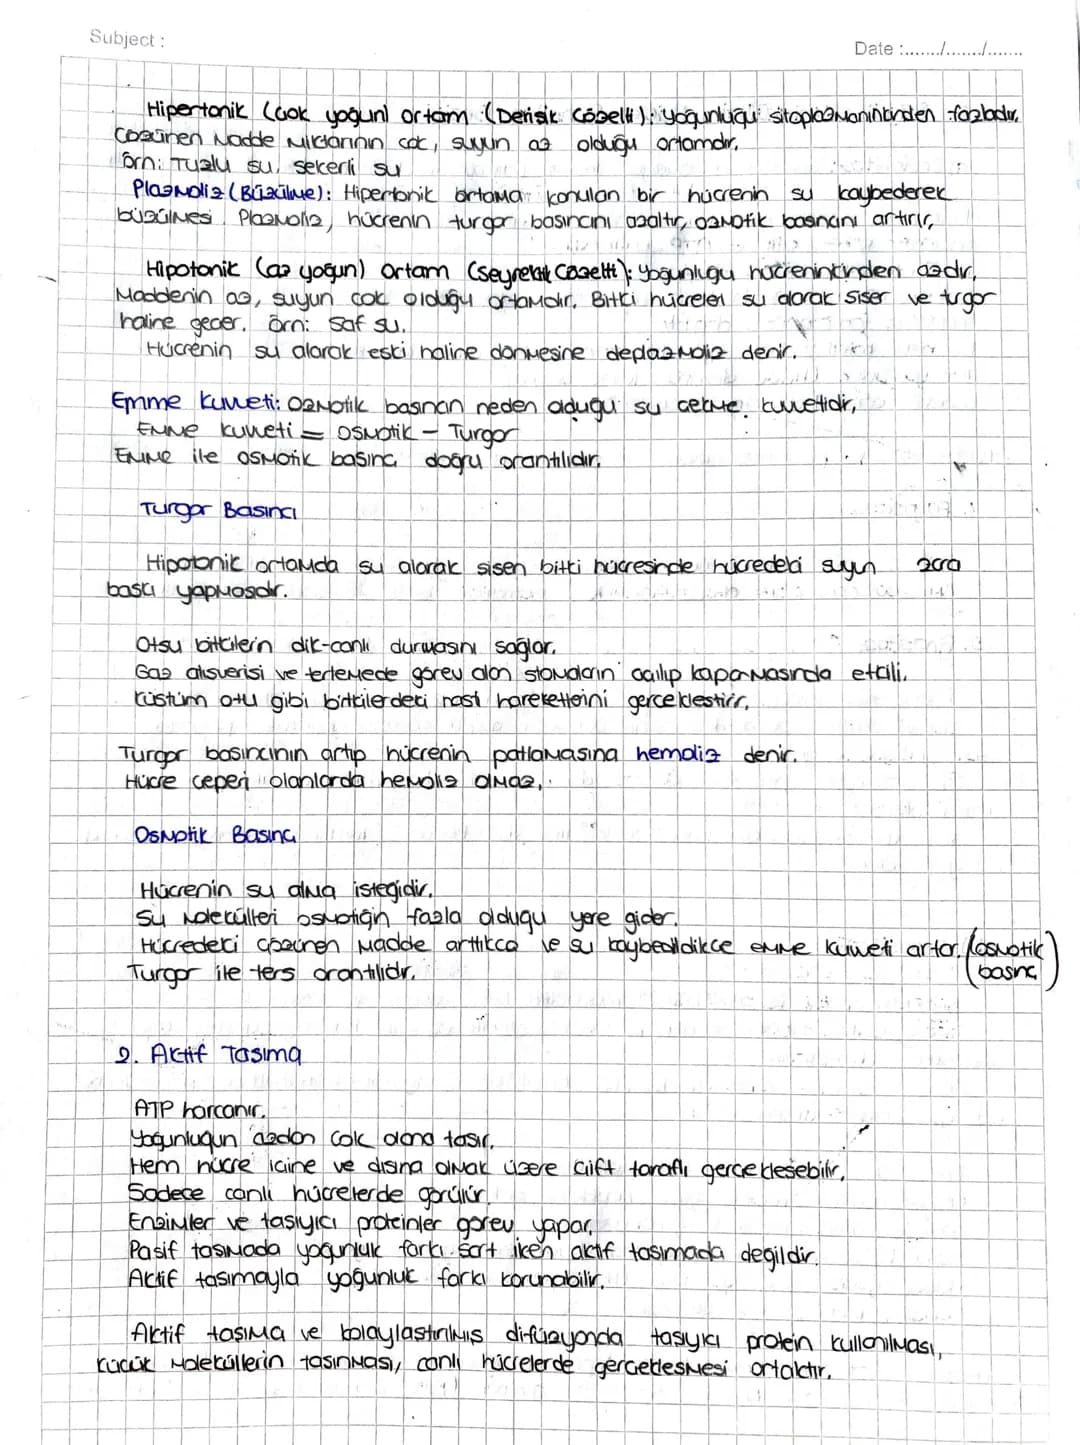 Subject :
Date :......./......./.......
Hipertonik (çok yoğun) ortam (Derişik Çözelti): Yoğunluğu sitoplazmanınkinden fazladır.
Çözünen madde miktarının çok, suyun az olduğu ortamdır.
Örn: Tuzlu su, şekerli su
Plazmoliz (Büzülme): Hipertonik ortama konulan bir hücrenin su kaybederek
büzülmesi. Plazmoliz, hücrenin turgor basıncını azaltır, ozmotik basıncını artırır.
Hipotonik (az yoğun) ortam (Seyreltik Çözelti): Yoğunlugu hücreninkinden azdır.
Maddenin az, suyun çok olduğu ortamdır. Bitki hücreleri su alarak şişer ve turgor
haline geçer. Örn: Saf su.
Hücrenin su alarak eski haline dönmesine deplazmoliz denir.
Emme kuvveti: Ozmotik basıncın neden olduğu su çekme kuvvetidir.
Emme kuvveti = Osmotik - Turgor
Emme ile osmotik basınç doğru orantılıdır.
Turgor Basıncı
Hipotonik ortamda su alarak şişen bitki hücresinde hücredeki suyun zara
baskı yapmasıdır.
Otsu bitkilerin dik-canlı durmasını sağlar.
Gaz alışverişi ve terlemede görev alan stomaların açılıp kapanmasında etkili.
Küstüm otu gibi bitkilerdeki nasti hareketlerini gerçekleştirir.
Turgor basıncının artıp hücrenin patlamasına hemoliz denir.
Hücre çeperi olanlarda hemoliz olmaz.
Osmotik Basınç
Hücrenin su alma isteğidir.
Su molekülleri osmotiğin fazla olduğu yere gider.
Hücredeki çözünen madde arttıkça ve su kaybedildikçe emme kuvveti artar. (osmotik
basınç)
Turgor ile ters orantılıdır.
2. Aktif Taşıma
ATP harcanır.
Yoğunluğun azdan çok olana taşır.
Hem hücre içine ve dışına olmak üzere çift taraflı gerçekleşebilir.
Sadece canlı hücrelerde görülür.
Enzimler ve taşıyıcı proteinler görev yapar.
Pasif taşımada yoğunluk farkı şart iken aktif taşımada değildir.
Aktif taşımayla yoğunluk farkı korunabilir.
Aktif taşıma ve kolaylaştırılmış difüzyonda taşıyıcı protein kullanılması,
küçük moleküllerin taşınması, canlı hücrelerde gerçekleşmesi ortaktır.